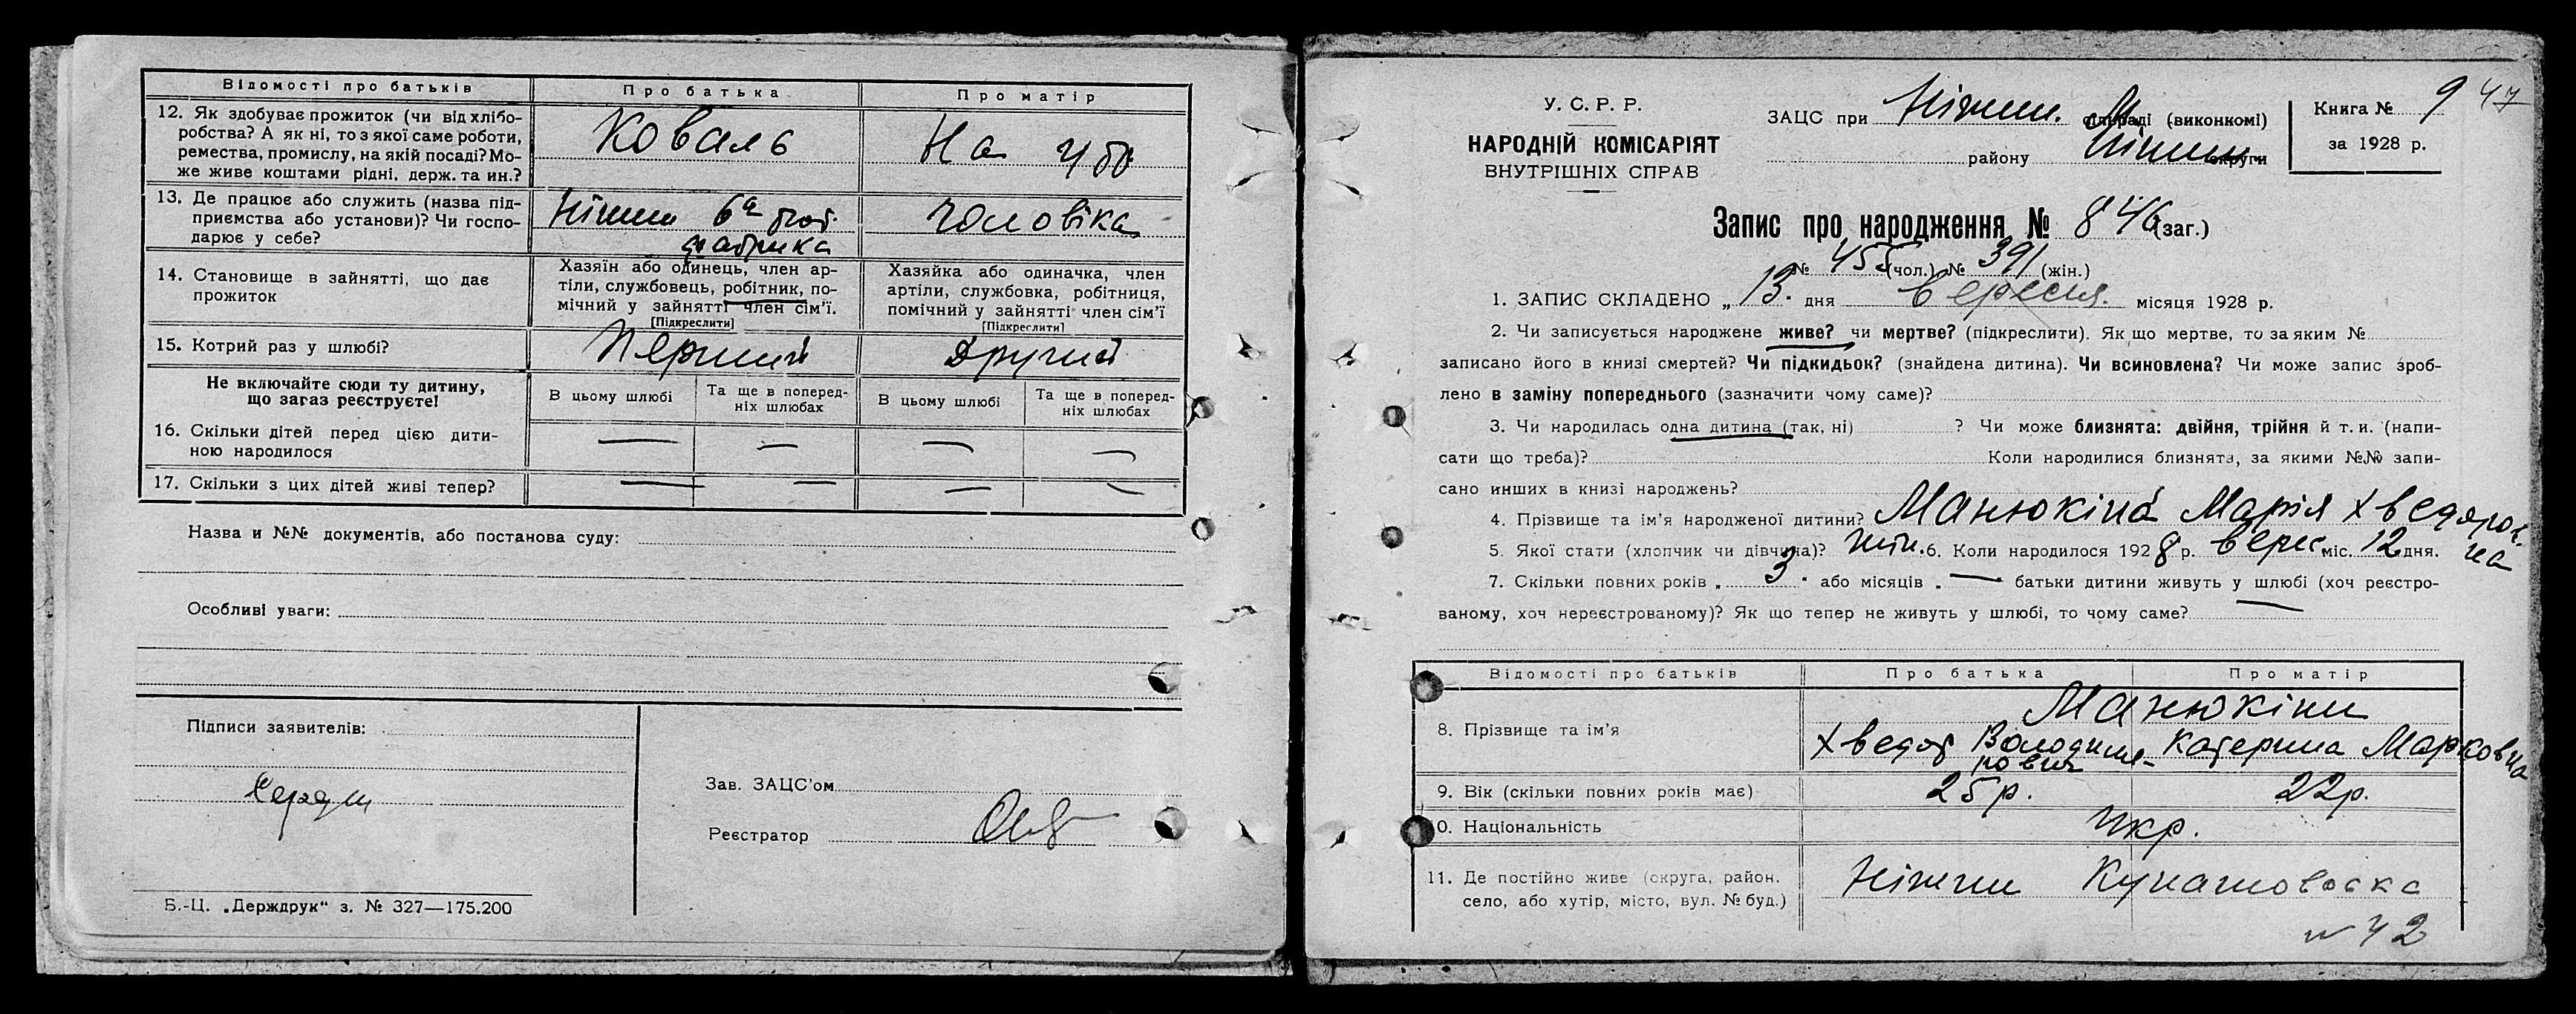 Відомості про батьків
Про батька
Про матір
12. Як здобуває прожиток (чи від хлібо-
робства? А як ні, то з якої саме роботи,
ремества, промислу, на якій посаді? Мо-
же живе коштами рідні, держ. та ин.?
Коваль
На уто
13. Де працює або служить (назва під-
приємства або установи)? Чи госпо-
дарює у себе?
Ніжин 6а
фабрика
чоловіка
14. Становище в зайнятті, що дає
прожиток
Хазяїн або одинець, член ар-
тіли, службовець, робітник, по-
мічний у зайнятті член сім'ї.
[Підкреслити]
Хазяйка або одиначка, член
артіли, службовка, робітниця,
помічний у зайнятті член сім'ї
[Підкреслити]
15. Котрий раз у шлюбі?
Перший
Другий
Не включайте сюди ту дитину,
що загаз реєструєте!
В цьому шлюбі
Та ще в поперед-
ніх шлюбах
В цьому шлюбі
Та ще в поперед-
ніх шлюбах
16. Скільки дітей перед цією дити-
ною народилося
— — — —
17. Скільки з цих дітей живі тепер?
— — — —
Назва и №№ документів, або постанова суду:
Особливі уваги:
Підписи заявителів:
Зав. ЗАЦС'ом
Реєстратор
Б.-Ц. „Держдрук" з. № 327—175.200
У. С. Р. Р.
НАРОДНІЙ КОМІСАРІЯТ
ВНУТРІШНІХ СПРАВ
ЗАЦС при Ніжин. М (виконкомі)
району Ніжин. округи
Книга № 9 47
за 1928 р.
Запис про народження № 846 (заг.)
№ 455 (чол.) № 391 (жін.)
1. ЗАПИС СКЛАДЕНО „13. дня вересня. місяця 1928 р.
2. Чи записується народжене живе? чи мертве? (підкреслити). Як що мертве, то за яким №
записано його в книзі смертей? Чи підкидьок? (знайдена дитина). Чи всиновлена? Чи може запис зроб-
лено в заміну попереднього (зазначити чому саме)?
3. Чи народилась одна дитина (так, ні) ? Чи може близнята: двійня, трійня й т. и. (напи-
сати що треба)? Коли народилися близнята, за якими №№ запи-
сано инших в книзі народжень?
4. Прізвище та ім'я народженої дитини? Манюкіна Марія Хведоров-
на
5. Якої стати (хлопчик чи дівчина)? жін. 6. Коли народилося 1928 р. верес міс. 12 дня.
7. Скільки повних років „ 3 " або місяців „ — " батьки дитини живуть у шлюбі (хоч реєстро-
ваному, хоч нереєстрованому)? Як що тепер не живуть у шлюбі, то чому саме?
Відомості про батьків
Про батька
Про матір
8. Прізвище та ім'я
Манюкіни
Хведор Володими-
рович
Катерина Марковна
9. Вік (скільки повних років має)
25р.
22р.
10. Національність
Укр.
11. Де постійно живе (округа, район.
село, або хутір, місто, вул. № буд.)
Ніжин Кунашовська
№ 42